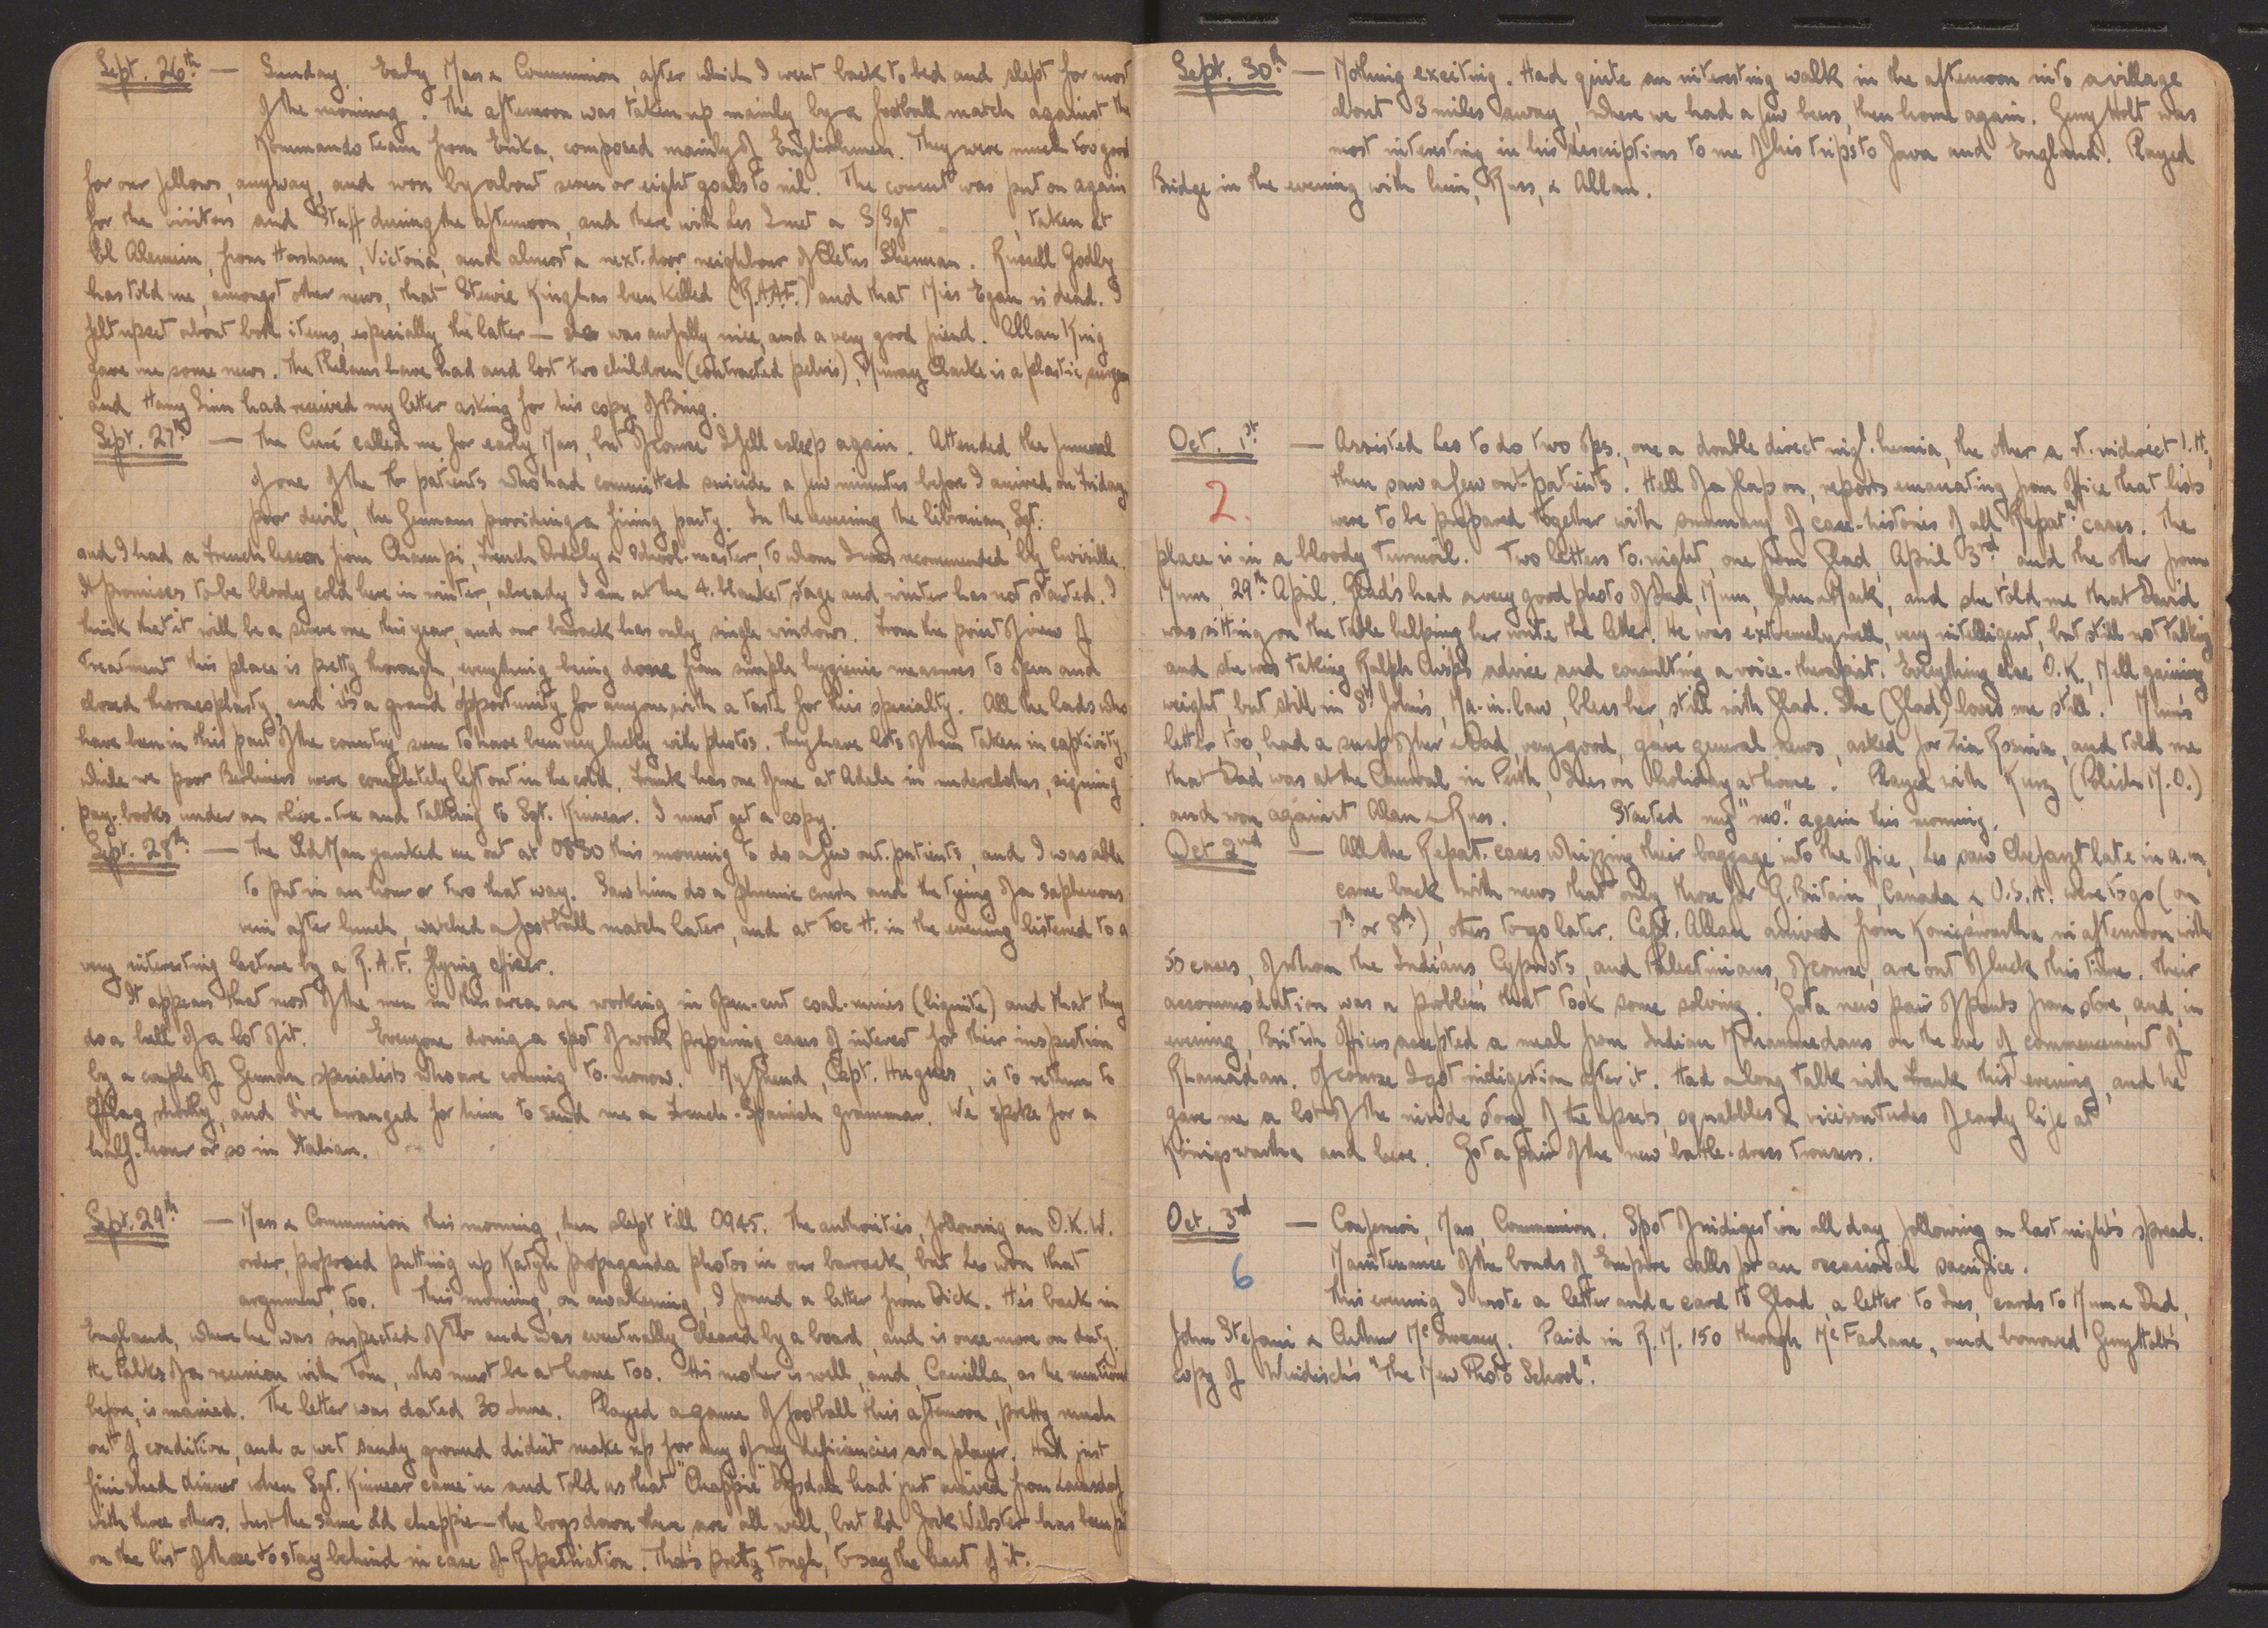 Sept. 26th — Sunday. Early Mass & Communion, after which I went back to bed and slept for most
of the morning. The afternoon was taken up mainly by a football match against the
Kommando team from Erika, composed mainly of Englishmen. They were much too good
for our fellows, anyway, and won by about seven or eight goals to nil. The concert was put on again
for the visitors and Staff during the afternoon, and there with Les I met a S/Sgt , taken at
El Alemein, from Horsham, Victoria, and almost a next-door neighbour of Cletus Shennan. Russell Godby
has told me, amongst other news, that Stewie King has been killed (R.A.A.F.) and that Miss Egan is dead. I
felt upset about both items, especially the latter — she was awfully nice, and a very good friend. Allan King
gave me some news. The Phelans have had and lost two children (contracted pelvis), Murray Clarke is a plastic surgeon
and Harry Sinn had received my letter asking for his copy of Bing.
Sept. 27th — The Curé called me for early Mass, but of course I fell asleep again. Attended the funeral
of one of the Tb patients who had committed suicide a few minutes before I arrived on Friday
poor devil, the Germans providing a firing party. In the evening the librarian, Sgt.
and I had a French lesson from Champi, French Orderly & School-master, to whom I was recommended by
It promises to be bloody cold here in winter, already I am at the 4-blanket stage and winter has not started. I
think that it will be a severe one this year, and our barrack has only single windows. From the point of view of
treatment this place is pretty thorough, everything being done from simple hygienic measures to open and
closed thoracoplasty, and it's a grand opportunity for anyone with a taste for this specialty. All the lads who
have been in this part of the country seem to have been very lucky with photos. They have lots of them taken in captivity,
while we poor Berliners were completely left out in the cold. Frank has one of me at Adele in underclothes, signing
pay-books under an olive-tree and talking to Sgt. Kinnear. I must get a copy.
Sept. 28th — The Old Man yanked me out at 0830 this morning to do a few out-patients, and I was able
to put in an hour or two that way. Saw him do a phrenic crush and the tying of a saphenous
vein after lunch, watched a football match later, and at Toc H. in the evening listened to a
very interesting lecture by a R.A.F. flying officer.
It appears that most of the men in this area are working in open-cut coal-mines (lignite) and that they
do a hell of a lot of it. Everyone doing a spot of work preparing cases of interest for their inspection
by a couple of German specialists who are coming to-morrow. My friend, Capt. Hugues, is to return to
Oflag shortly, and I've arranged for him to send me a French-Spanish grammar. We spoke for a
half-hour or so in Italian.
Sept. 29th — Mass & Communion this morning, then slept till 0945. The authorities, following an O.K.W.
order, proposed putting up Katyn propaganda photos in our barrack, but Les won that
argument, too. This morning, on awakening, I found a letter from Dick. He's back in
England, where he was suspected of Tb and was eventually cleared by a board, and is once more on duty.
He talks of a reunion with Tom, who must be at home too. His mother is well, and, Camilla, as he mentioned
before, is married. The letter was dated 30 June. Played a game of football this afternoon, pretty much
out of condition, and a wet sandy ground didn't make up for any of my deficiencies as a player. Had just
finished dinner when Sgt. Kinnear came in and told us that "Chappie" Dysdale had just arrived from Lamsdorf
with three others. Just the same old chappie — the boys down there are all well, but old Jock Webster has been put
on the list of those to stay behind in case of Repatriation. That's pretty tough, to say the least of it.
Sept. 30th — Nothing exciting. Had quite an interesting walk in the afternoon into a village
about 3 miles away, where we had a few beers, then home again. Geny Holt was
most interesting in his descriptions to me of his trips to Java and England. Played
Bridge in the evening with him, Russ, & Allan.
Oct. 1st — Assisted Les to do two ops., one a double direct ing'. hernia, the other a rt. indirect I.H.,
2. then saw a few out-patients. Hell of a flap on, reports emanating from Office that lists
were to be prepared together with summary of case-histories of all Repatn cases. The
place is in a bloody turmoil. Two letters to-night, one from Glad, April 3rd, and the other from
Mum, 29th April. Glad's had a very good photo of Dad, Mum, John & Mark, and she told me that David
was sitting on the table helping her write the letter. He was extremely well, very intelligent, but still not talking
and she was taking Ralph Crisp's advice and consulting a voice-therapist. Everything else O.K., Nell gaining
weight, but still in St John's, Ma-in-law, bless her, still with Glad. She (Glad) loves me still. Mum's
letter too, had a snap of her & Dad, very good, gave general news, asked for Zia Rosinia, and told me
that Dad was at the Carnival in Perth, Ines on holiday at home. Played with Kurz (Polish M.O.)
and won against Alan & Russ. Started my "neo." again this morning.
Oct 2nd — All the Repat. cases whipping their baggage into the Office, Les saw Chefarzt late in a.m.
came back with news that only those for G. Britain, Canada & U.S.A. were to go (on
7th or 8th), others to go later. Capt. Allan arrived from Konigswartha in afternoon with
50 cases, of whom the Indians, Cypriots, and Palestinians, of course, are out of luck this time. Their
accommodation was a problem that took some solving. Got a new pair of pants from store, and, in
evening, British Officers accepted a meal from Indian Mohammedans on the eve of commencement of
Rhamadan. Of course I got indigestion after it. Had a long talk with Frank this evening, and he
gave me a lot of the inside story of the upsets, squabbles & vicissitudes of early life at
Königswartha and here. Got a pair of the new battle-dress trousers.
Oct. 3rd — Confession, Mass, Communion. Spot of indigestion all day following on last night's spread.
6 Maintenance of the bonds of Empire calls for an occasional sacrifice.
This evening I wrote a letter and a card to Glad, a letter to Ines, cards to Mum & Dad,
John Stefani & Arthur McSweeney. Paid in R.M. 150 through McFarlane, and borrowed Geny Holt's
copy of Windisch's "The New Photo School".